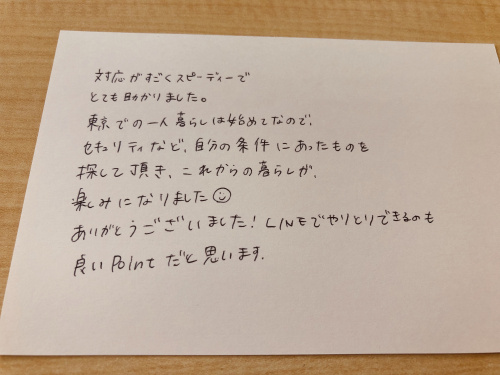 対応がすごくスピーディーで
とても助かりました。
東京での一人暮らしは始めてなので、
セキュリティなど、自分の条件にあったものを
探して頂き、これからの暮らしが、
楽しみになりました☺
ありがとうございました! LINEでやりとりできるのも
良いPointだと思います.